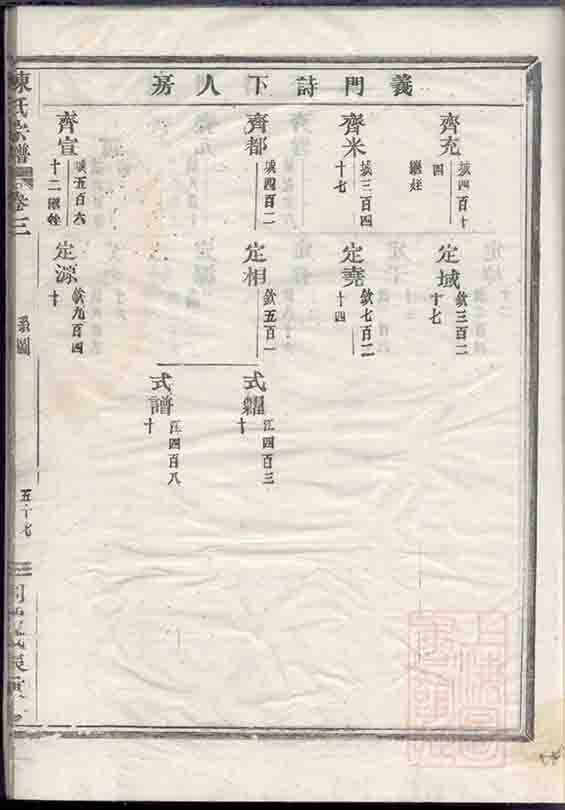 義門詩下人房
齊充
四
繼姪
定域
欽三百二
十七
齊米
城三百四
十七
定堯
欽七百二
十四
齊都
城四百二
定相
欽五百一
式糶
江四百三
十
式譜
江四百八
十
齊宣
城五百六
十二繼姪
定源
欽九百四
十
陳氏宗譜
卷三
系圖
五十七